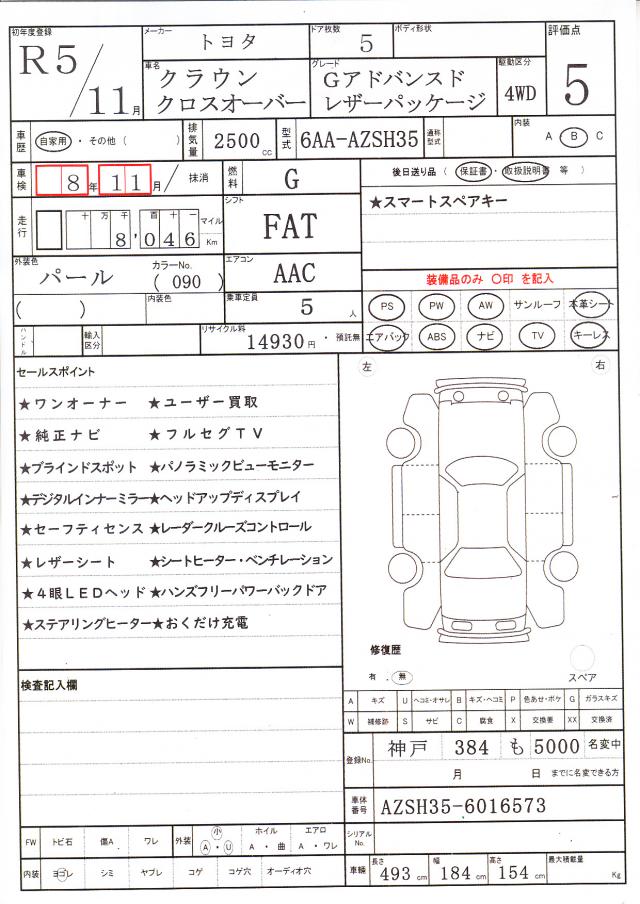 初年度登録 R5/11月
メーカー トヨタ
ドア枚数 5
ボディ形状
評価点 5
車名 クラウン クロスオーバー
グレード Gアドバンスド レザーパッケージ
駆動区分 4WD
車歴 自家用・その他（ ）
排気量 2500cc
型式 6AA-AZSH35
通称型式
内装 A B C
車検 8年11月/ 抹消
燃料 G
後日送り品（保証書・取扱説明書 等）
★スマートスペアキー
走行 十万千百十一 8,046 マイル Km
シフト FAT
外装色 パール
カラーNo.（090）
エアコン AAC
装備品のみ 〇印 を記入
( ) 内装色
乗車定員 5人
PS PW AW サンルーフ 本革シート
エアバック ABS ナビ TV キーレス
ハンドル
輸入区分
リサイクル料 14930円・預託無
セールスポイント
★ワンオーナー ★ユーザー買取
★純正ナビ ★フルセグTV
★ブラインドスポット ★パノラミックビューモニター
★デジタルインナーミラー★ヘッドアップディスプレイ
★セーフティセンス ★レーダークルーズコントロール
★レザーシート ★シートヒーター・ベンチレーション
★4眼LEDヘッド ★ハンズフリーパワーバックドア
★ステアリングヒーター★おくだけ充電
左 右
修復歴
有．無
スペア
検査記入欄
A キズ U ヘコミ・オサレ B キズ・ヘコミ P 色あせ・ボケ G ガラスキズ
W 補修跡 S サビ C 腐食 X 交換要 XX 交換済
登録No. 神戸 384 も 5000 名変中
月 日 までに名変できる方
車体番号 AZSH35-6016573
シリアルNo.
FW トビ石 傷A ワレ 外装 小 A・U ホイル A・曲 エアロ A・ワレ
内装 ヨゴレ シミ ヤブレ コゲ コゲ穴 オーディオ穴
車輛 長さ 493cm 幅 184cm 高さ 154cm 最大積載量 Kg